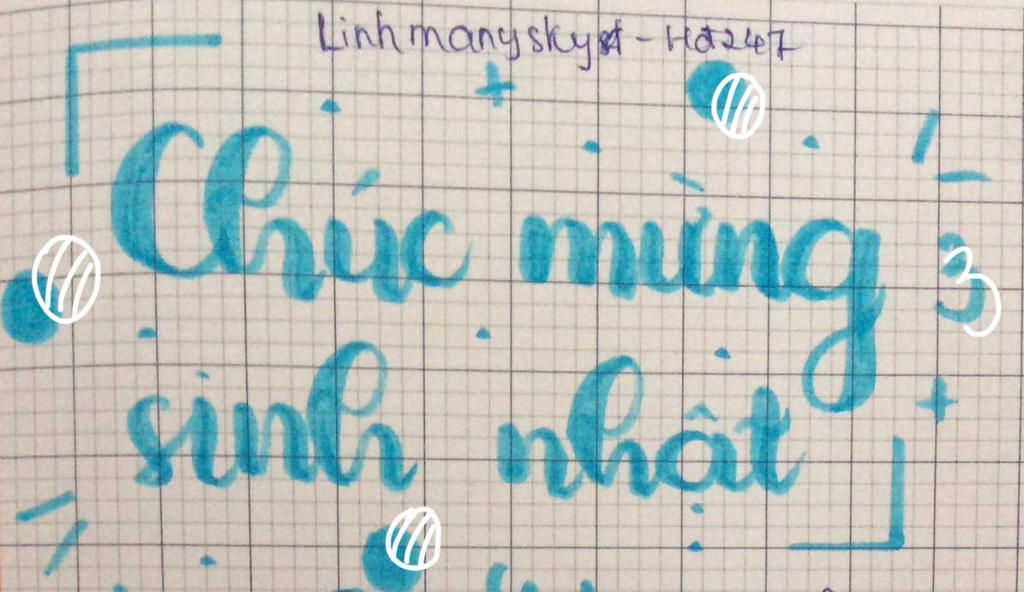 Linhmanysky - Hd247
Chúc mừng
sinh nhật